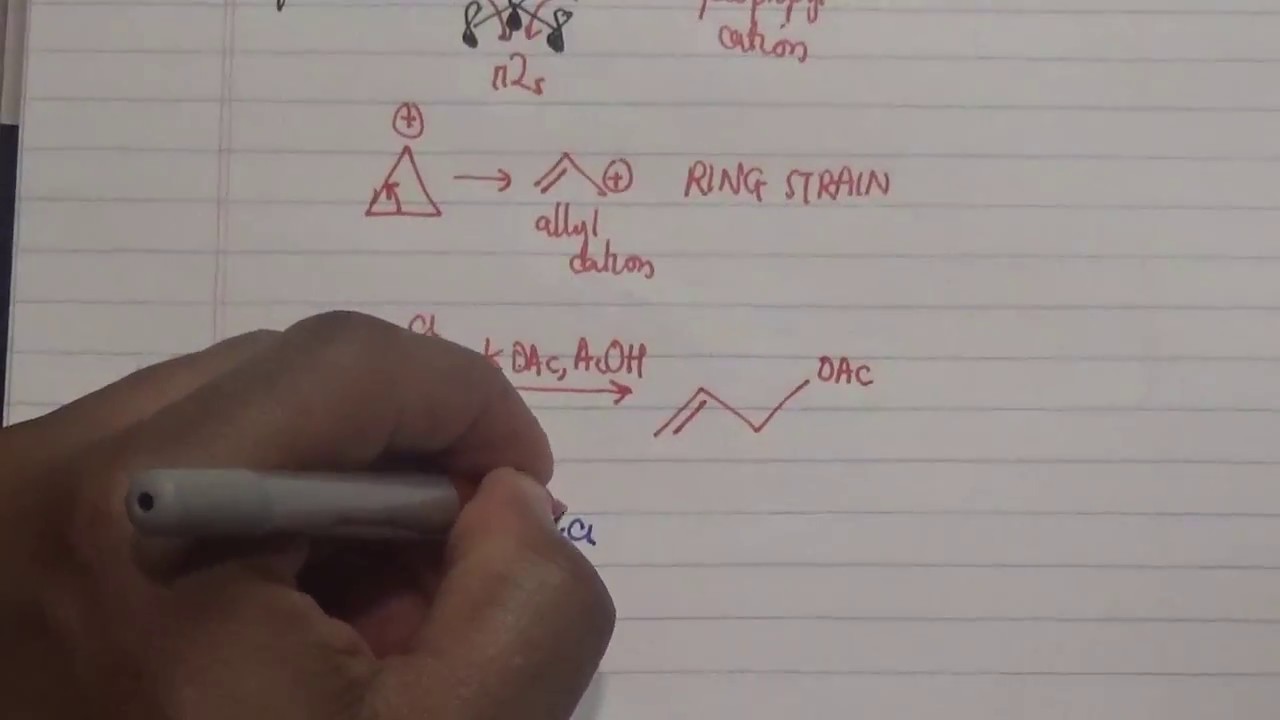 cation
π2s
⊕
⊕ RING STRAIN
allyl
cation
Cl
KOAc, AcOH
OAc
Cl